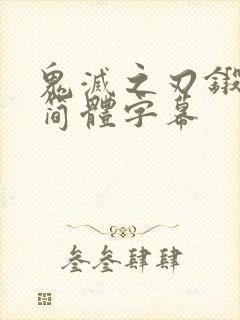 鬼滅之刃鍛
简體字幕
叁叁肆肆